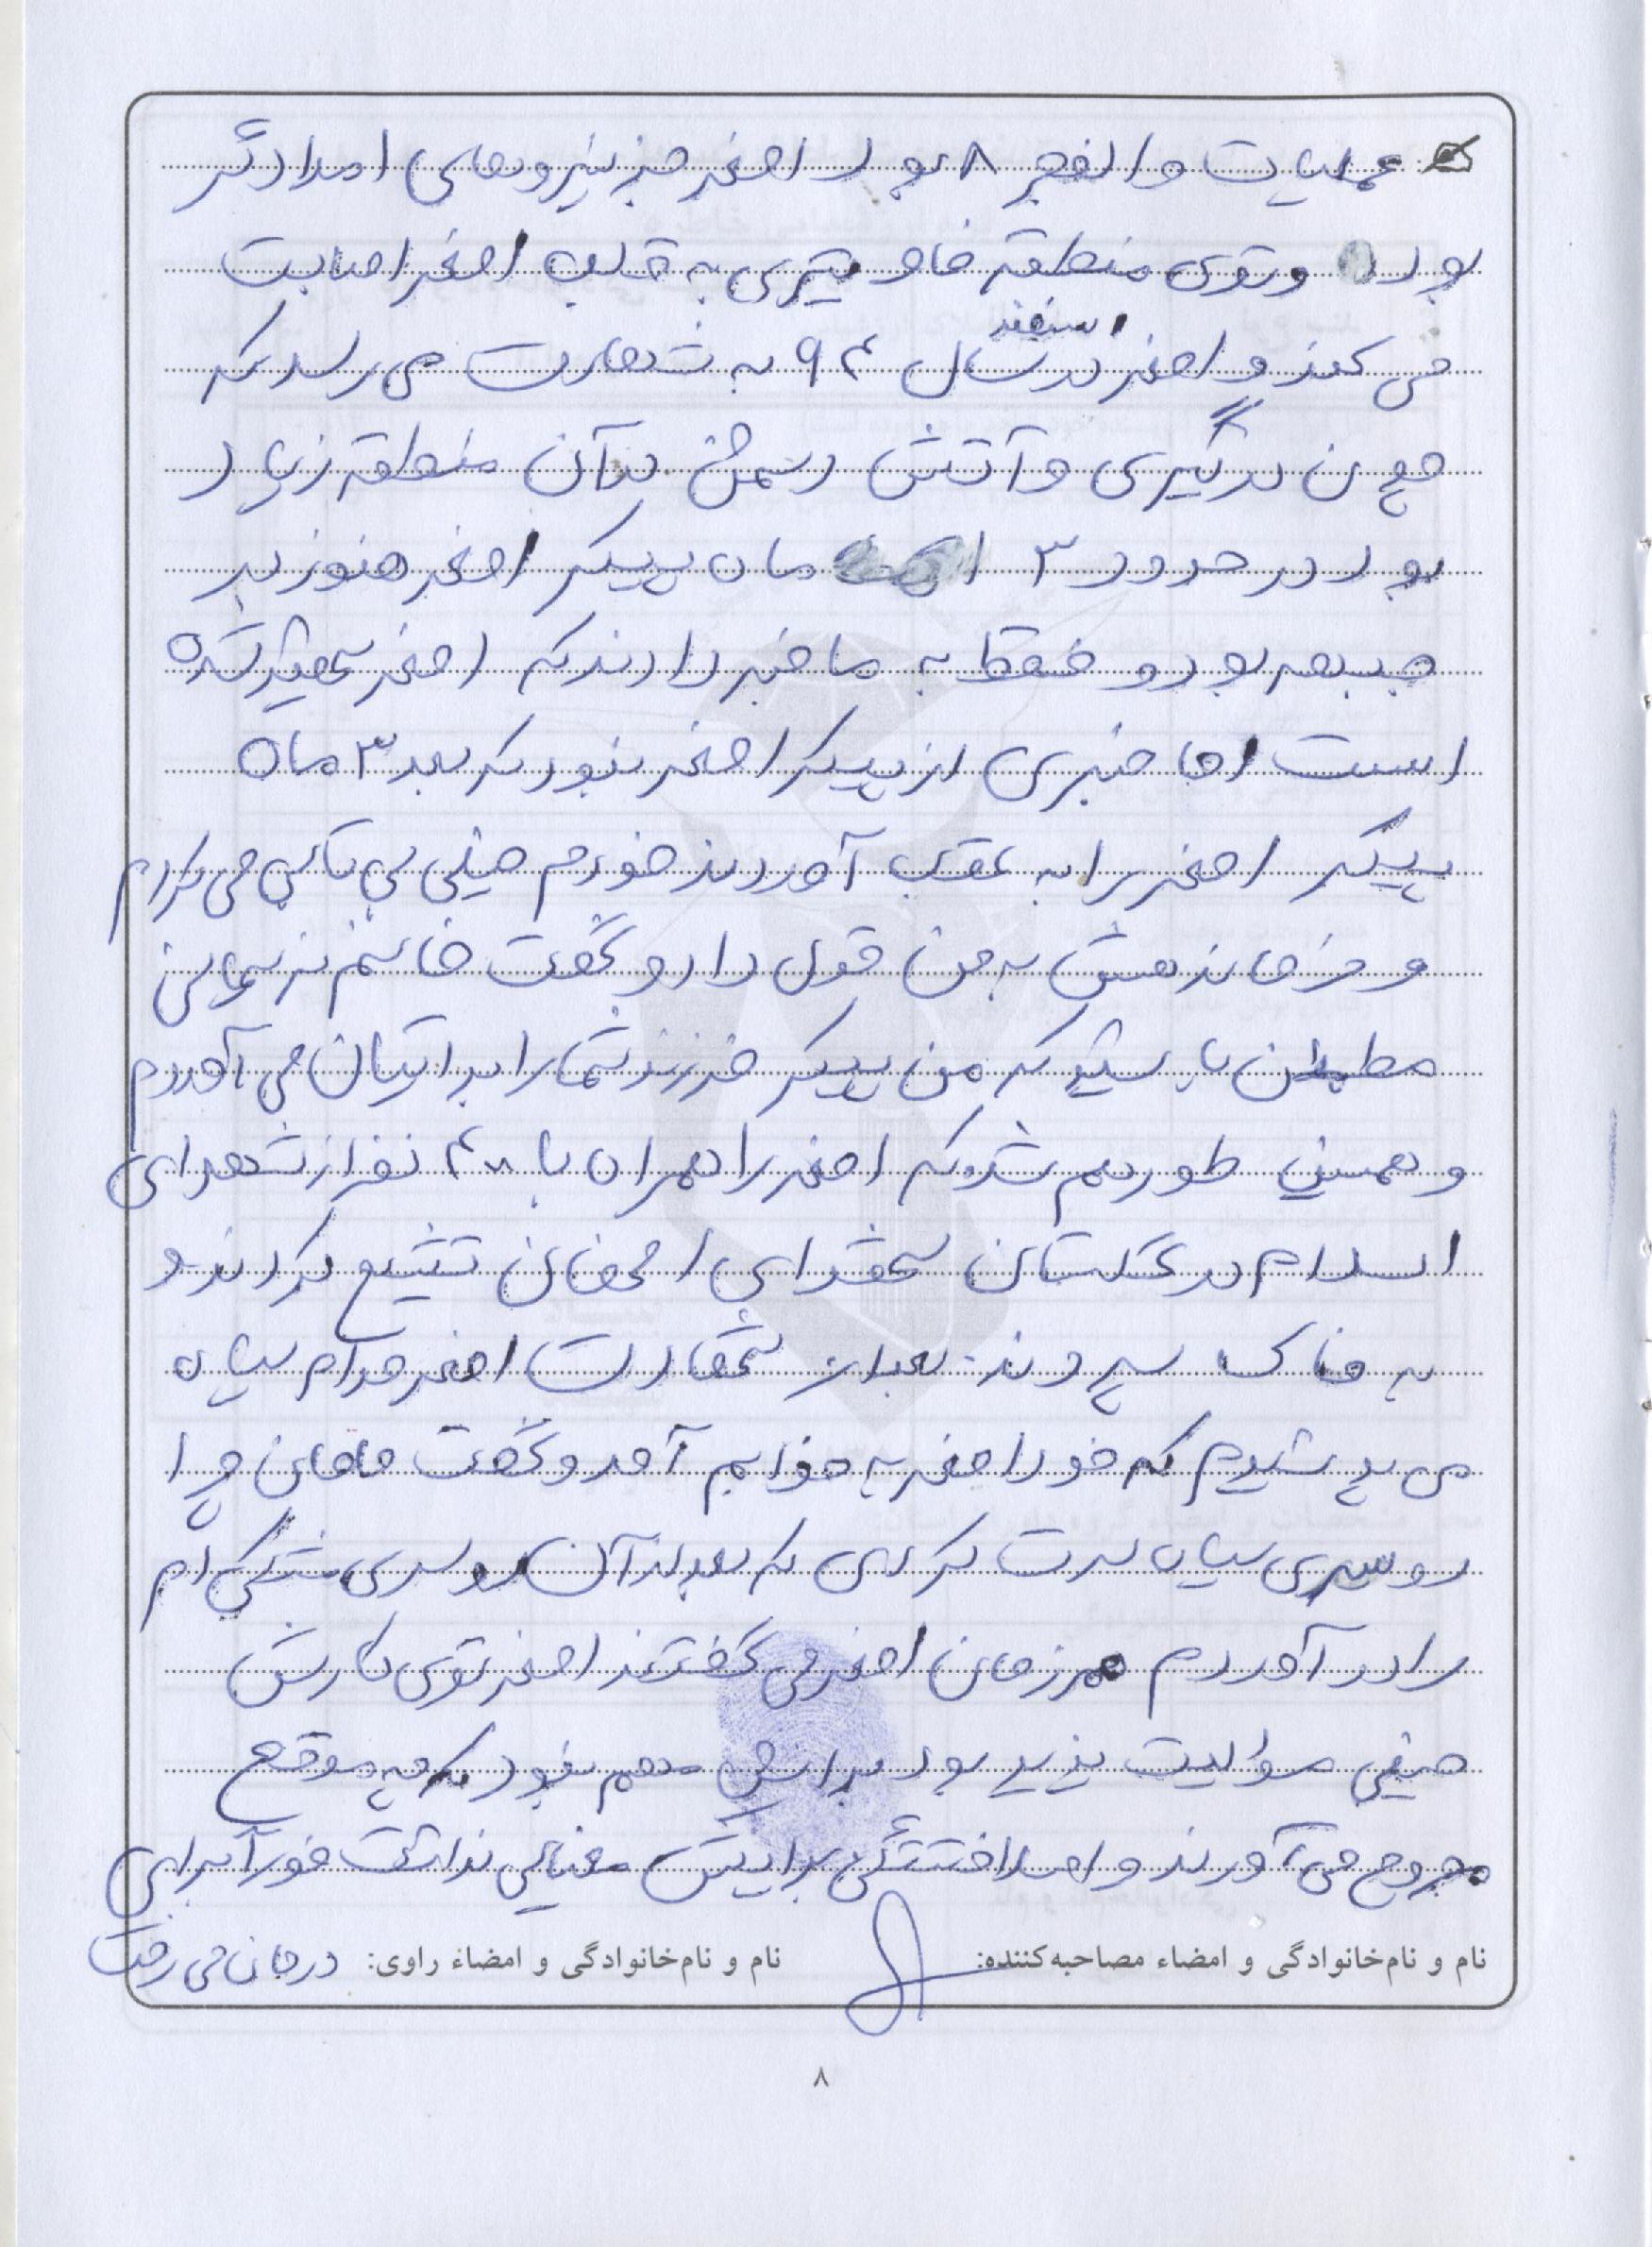 عملیات والفجر ۸ بود اصغر جزء نیروهای امدادگر
بود و توی منطقه فاو تیری به قلب اصغر اصابت
می کند و اصغر در اسفند سال ۶۴ به شهادت می رسد که
چون درگیری و آتش دشمن در آن منطقه زیاد
بود در حدود ۳ ماه پیکر اصغر هنوز در
جبهه بود و فقط به ما خبر دادند که اصغر شهید شده
است اما خبری از پیکر اصغر نبود که بعد ۳ ماه
پیکر اصغر را به عقب آوردند خودم خیلی بی تابی می کردم
و فرمانده‌ش به من قول داد و گفت خانم نریمانی
مطمئن باشید که من پیکر فرزند شما را برایتان می آوردم
و همین طور هم شد که اصغر را همراه با ۴۰ نفر از شهدای
اسلام در گلستان شهدای اصفهان تشییع کردند و
به خاک سپردند. بعد از شهادت اصغر مدام سیاه
می پوشیدم که خود اصغر به خوابم آمد و گفت مامان چرا
روسری سیاه سرت کردی که بعد از آن روسری مشکی ام
را در آوردم همرزمان اصغر می گفتند اصغر توی کارش
خیلی مسئولیت پذیر بود برایش مهم نبود که چه موقع
مجروح می آورند و اصلا خستگی برایش معنایی نداشت فوراً برای
درمان می رفت
نام و نام‌خانوادگی و امضاء مصاحبه‌کننده:
نام و نام‌خانوادگی و امضاء راوی:
۸